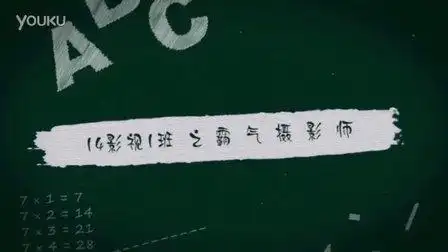 YOUKU
ABC
14影视1班 之霸气摄影师
7 x 1 = 7
7 x 2 = 14
7 x 3 = 21
7 x 4 = 28